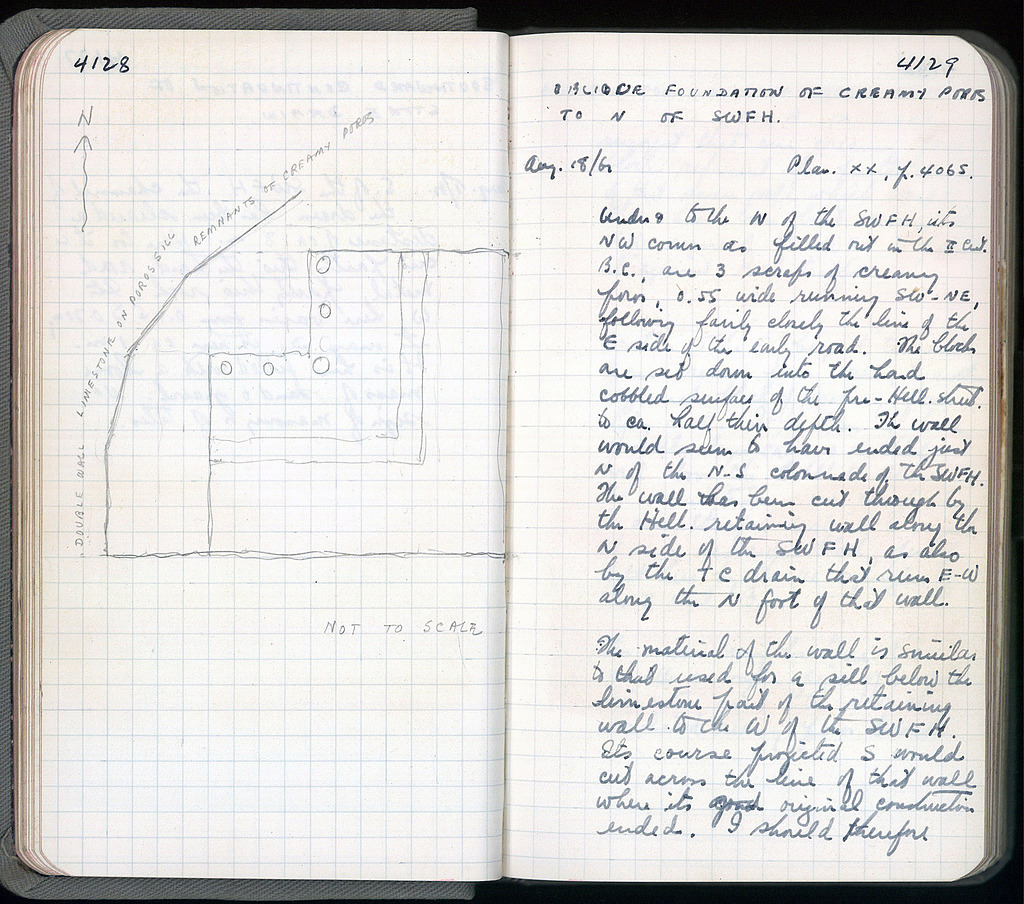 4128
N
REMNANTS OF CREAMY POROS
DOUBLE WALL LIMESTONE ON POROS SILL
NOT TO SCALE
4129
OBLIQUE FOUNDATION OF CREAMY POROS
TO N OF SWFH.
Aug. 18/61
Plan. XX, p. 4065.
to the N of the SWFH, its
NW corner as filled out in the II Cent.
B.C., are 3 scraps of creamy
poros, 0.55 wide running SW-NE,
following fairly closely the line of the
E side of the early road. The blocks
are set down into the hard
cobbled surface of the pre-Hell. street.
to ca. half their depth. The wall
would seem to have ended just
N of the N-S colonnade of the SWFH.
The wall has been cut through by
the Hell. retaining wall along the
N side of the SWFH, as also
by the TC drain that runs E-W
along the N foot of that wall.
The material of the wall is similar
to that used for a sill below the
limestone part of the retaining
wall to the W of the SWFH.
Its course projected S would
cut across the line of that wall
where its original construction
ended. I should therefore